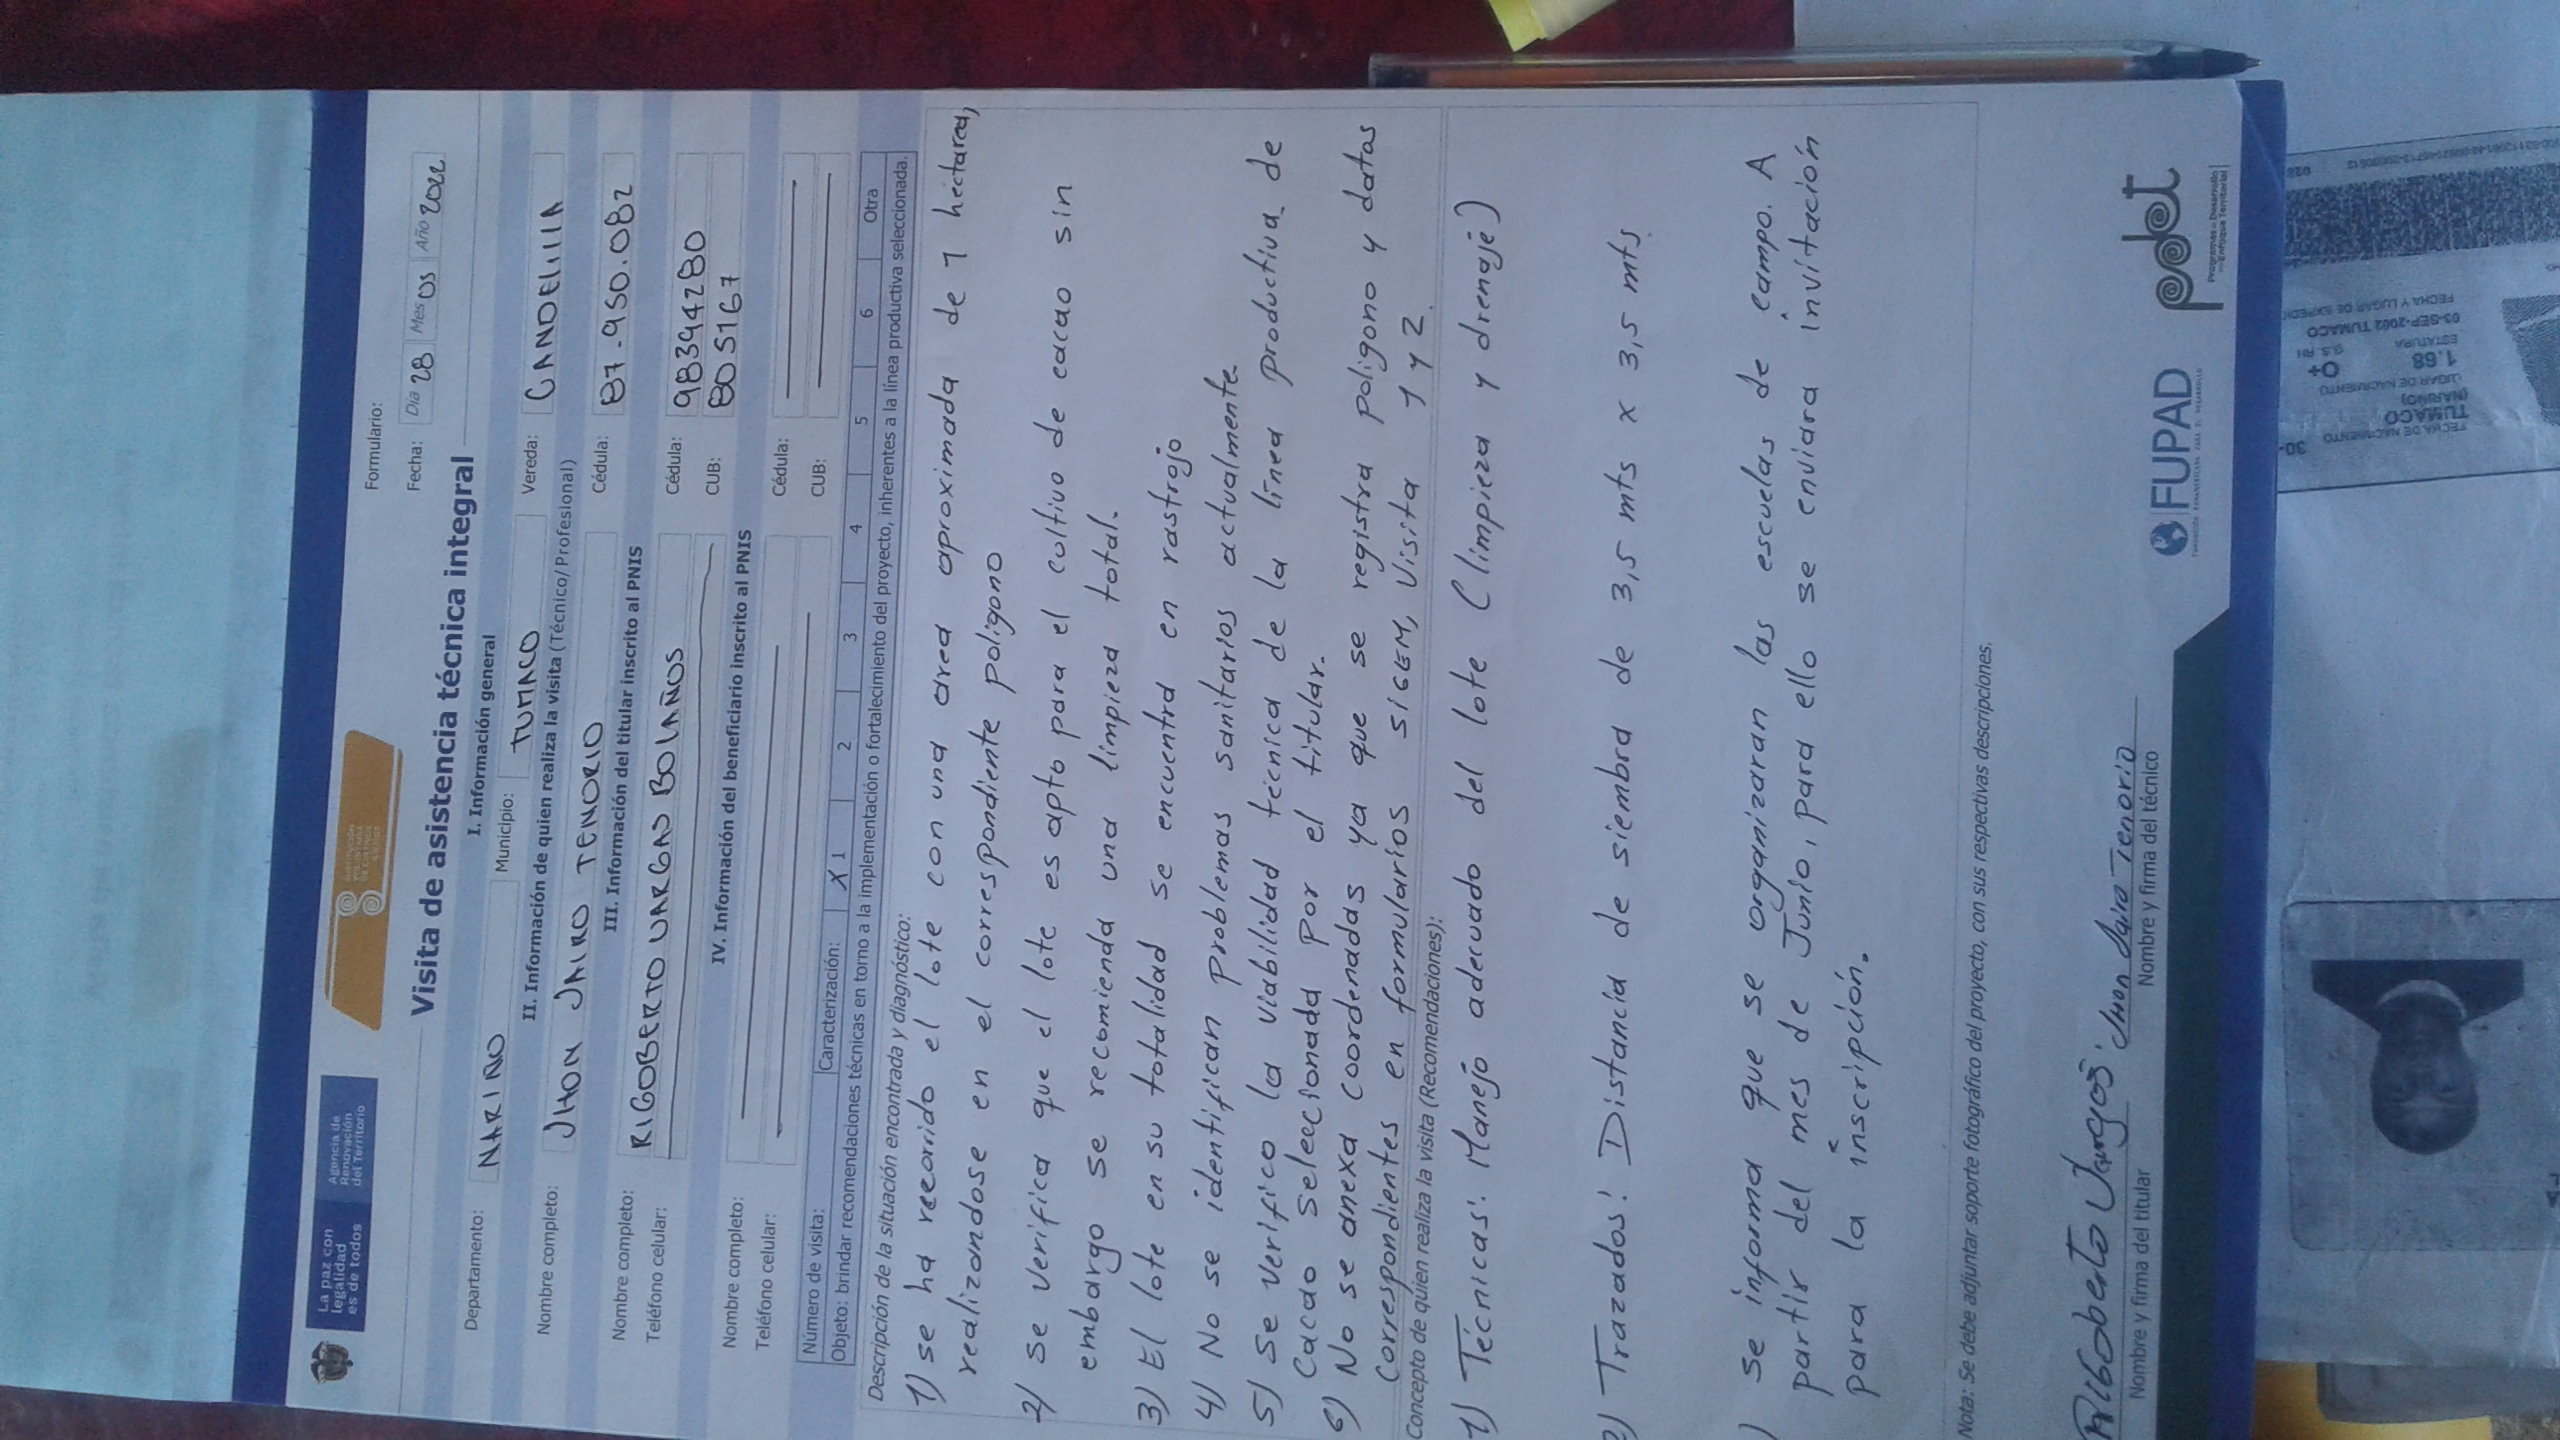 La paz con
legalidad
es de todos
Agencia de
Renovación
del Territorio
SUSTITUCIÓN
VOLUNTARIA
DE CULTIVOS
ILÍCITOS
Formulario:
Visita de asistencia técnica integral
Fecha: Día 28 Mes 05 Año 2022
I. Información general
Departamento: NARIÑO Municipio: TUMACO Vereda: CANDELILLA
II. Información de quien realiza la visita (Técnico/Profesional)
Nombre completo: JHON JAIRO TENORIO Cédula: 87.950.082
III. Información del titular inscrito al PNIS
Nombre completo: RIGOBERTO VARGAS BOLAÑOS Cédula: 98394280
Teléfono celular: CUB: 805167
IV. Información del beneficiario inscrito al PNIS
Nombre completo: Cédula:
Teléfono celular: CUB:
Número de visita: Caracterización: X 1 2 3 4 5 6 Otra
Objeto: brindar recomendaciones técnicas en torno a la implementación o fortalecimiento del proyecto, inherentes a la línea productiva seleccionada.
Descripción de la situación encontrada y diagnóstico:
1) se ha recorrido el lote con una area aproximada de 1 hectarea,
realizandose en el correspondiente poligono
2) se verifica que el lote es apto para el cultivo de cacao sin
embargo se recomienda una limpieza total.
3) El lote en su totalidad se encuentra en rastrojo
4) No se identifican problemas sanitarios actualmente.
5) se verifico la viabilidad técnica de la línea productiva de
cacao seleccionada por el titular.
6) No se anexa coordenadas ya que se registra poligono y datos
correspondientes en formularios SIGEM, Visita 1 y 2.
Concepto de quien realiza la visita (Recomendaciones):
1) Técnicas: Manejo adecuado del lote (limpieza y drenaje)
2) Trazados: Distancia de siembra de 3,5 mts x 3,5 mts
) se informa que se organizaran las escuelas de campo. A
partir del mes de Junio, para ello se enviara invitación
para la inscripción.
Nota: Se debe adjuntar soporte fotográfico del proyecto, con sus respectivas descripciones.
Rigoberto Vargas. Jhon Jairo Tenorio
Nombre y firma del titular Nombre y firma del técnico
FUPAD
pdet
Programas de Desarrollo
con Enfoque Territorial
FECHA DE NACIMIENTO 30-
TUMACO
(NARIÑO)
LUGAR DE NACIMIENTO
1.68 O+
ESTATURA G.S. RH
03-SEP-2002 TUMACO
FECHA Y LUGAR DE EXPEDICI